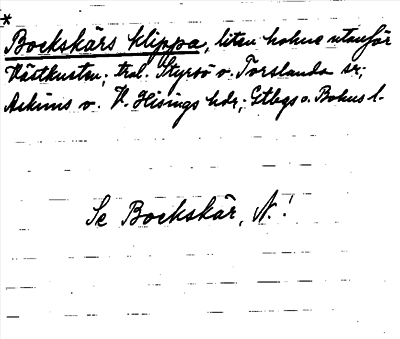 *
Bockskärs klippa, liten holme utanför
Västkusten; tral. Styrsö o. Torslanda sn;
Askims o. V. Hisings hdr; Gtbgs o. Bohus l.
Se Bockskär, N.!